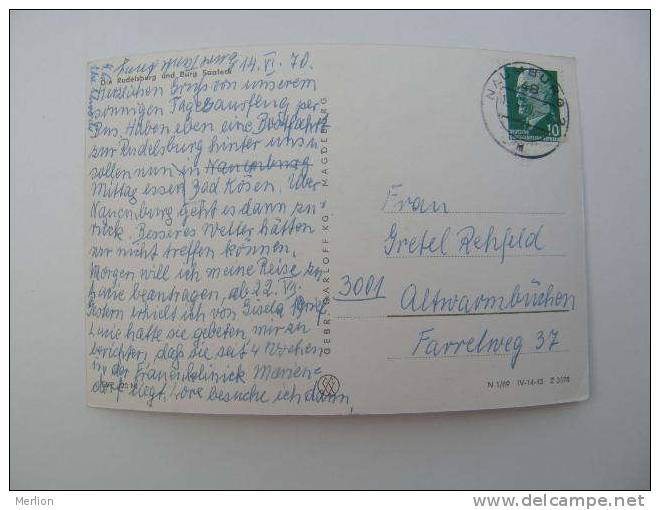 14. VI. 70.
Die Rudelsburg und Burg Saaleck
Herzlichen Gruß von unserem
sonnigen Tagesausflug per
Bus. Haben eben eine Bootfahrt
zur Rudelsburg hinter uns u.
sollen nun in Naumburg
Mittag essen Bad Kösen. Über
Naumburg geht es dann zu-
rück. Besseres Wetter hätten
wir nicht treffen können.
Morgen will ich meine Reise zu
Lucie beantragen, ab 22. VII.
Gestern erhielt ich von Gisela Brief
Lucie hatte sie gebeten, mir zu
berichten, daß sie seit 4 Wochen
in der Frauenklinick Marien-
dorf liegt, besuche ich dann,
GEBR. GARLOFF KG, MAGDEBURG
10
Frau
Gretel Rehfeld
3001 Altwarmbüchen
Farrelweg 37
N 1/69 IV-14-45 Z 3078
Merlion
www.delcampe.net